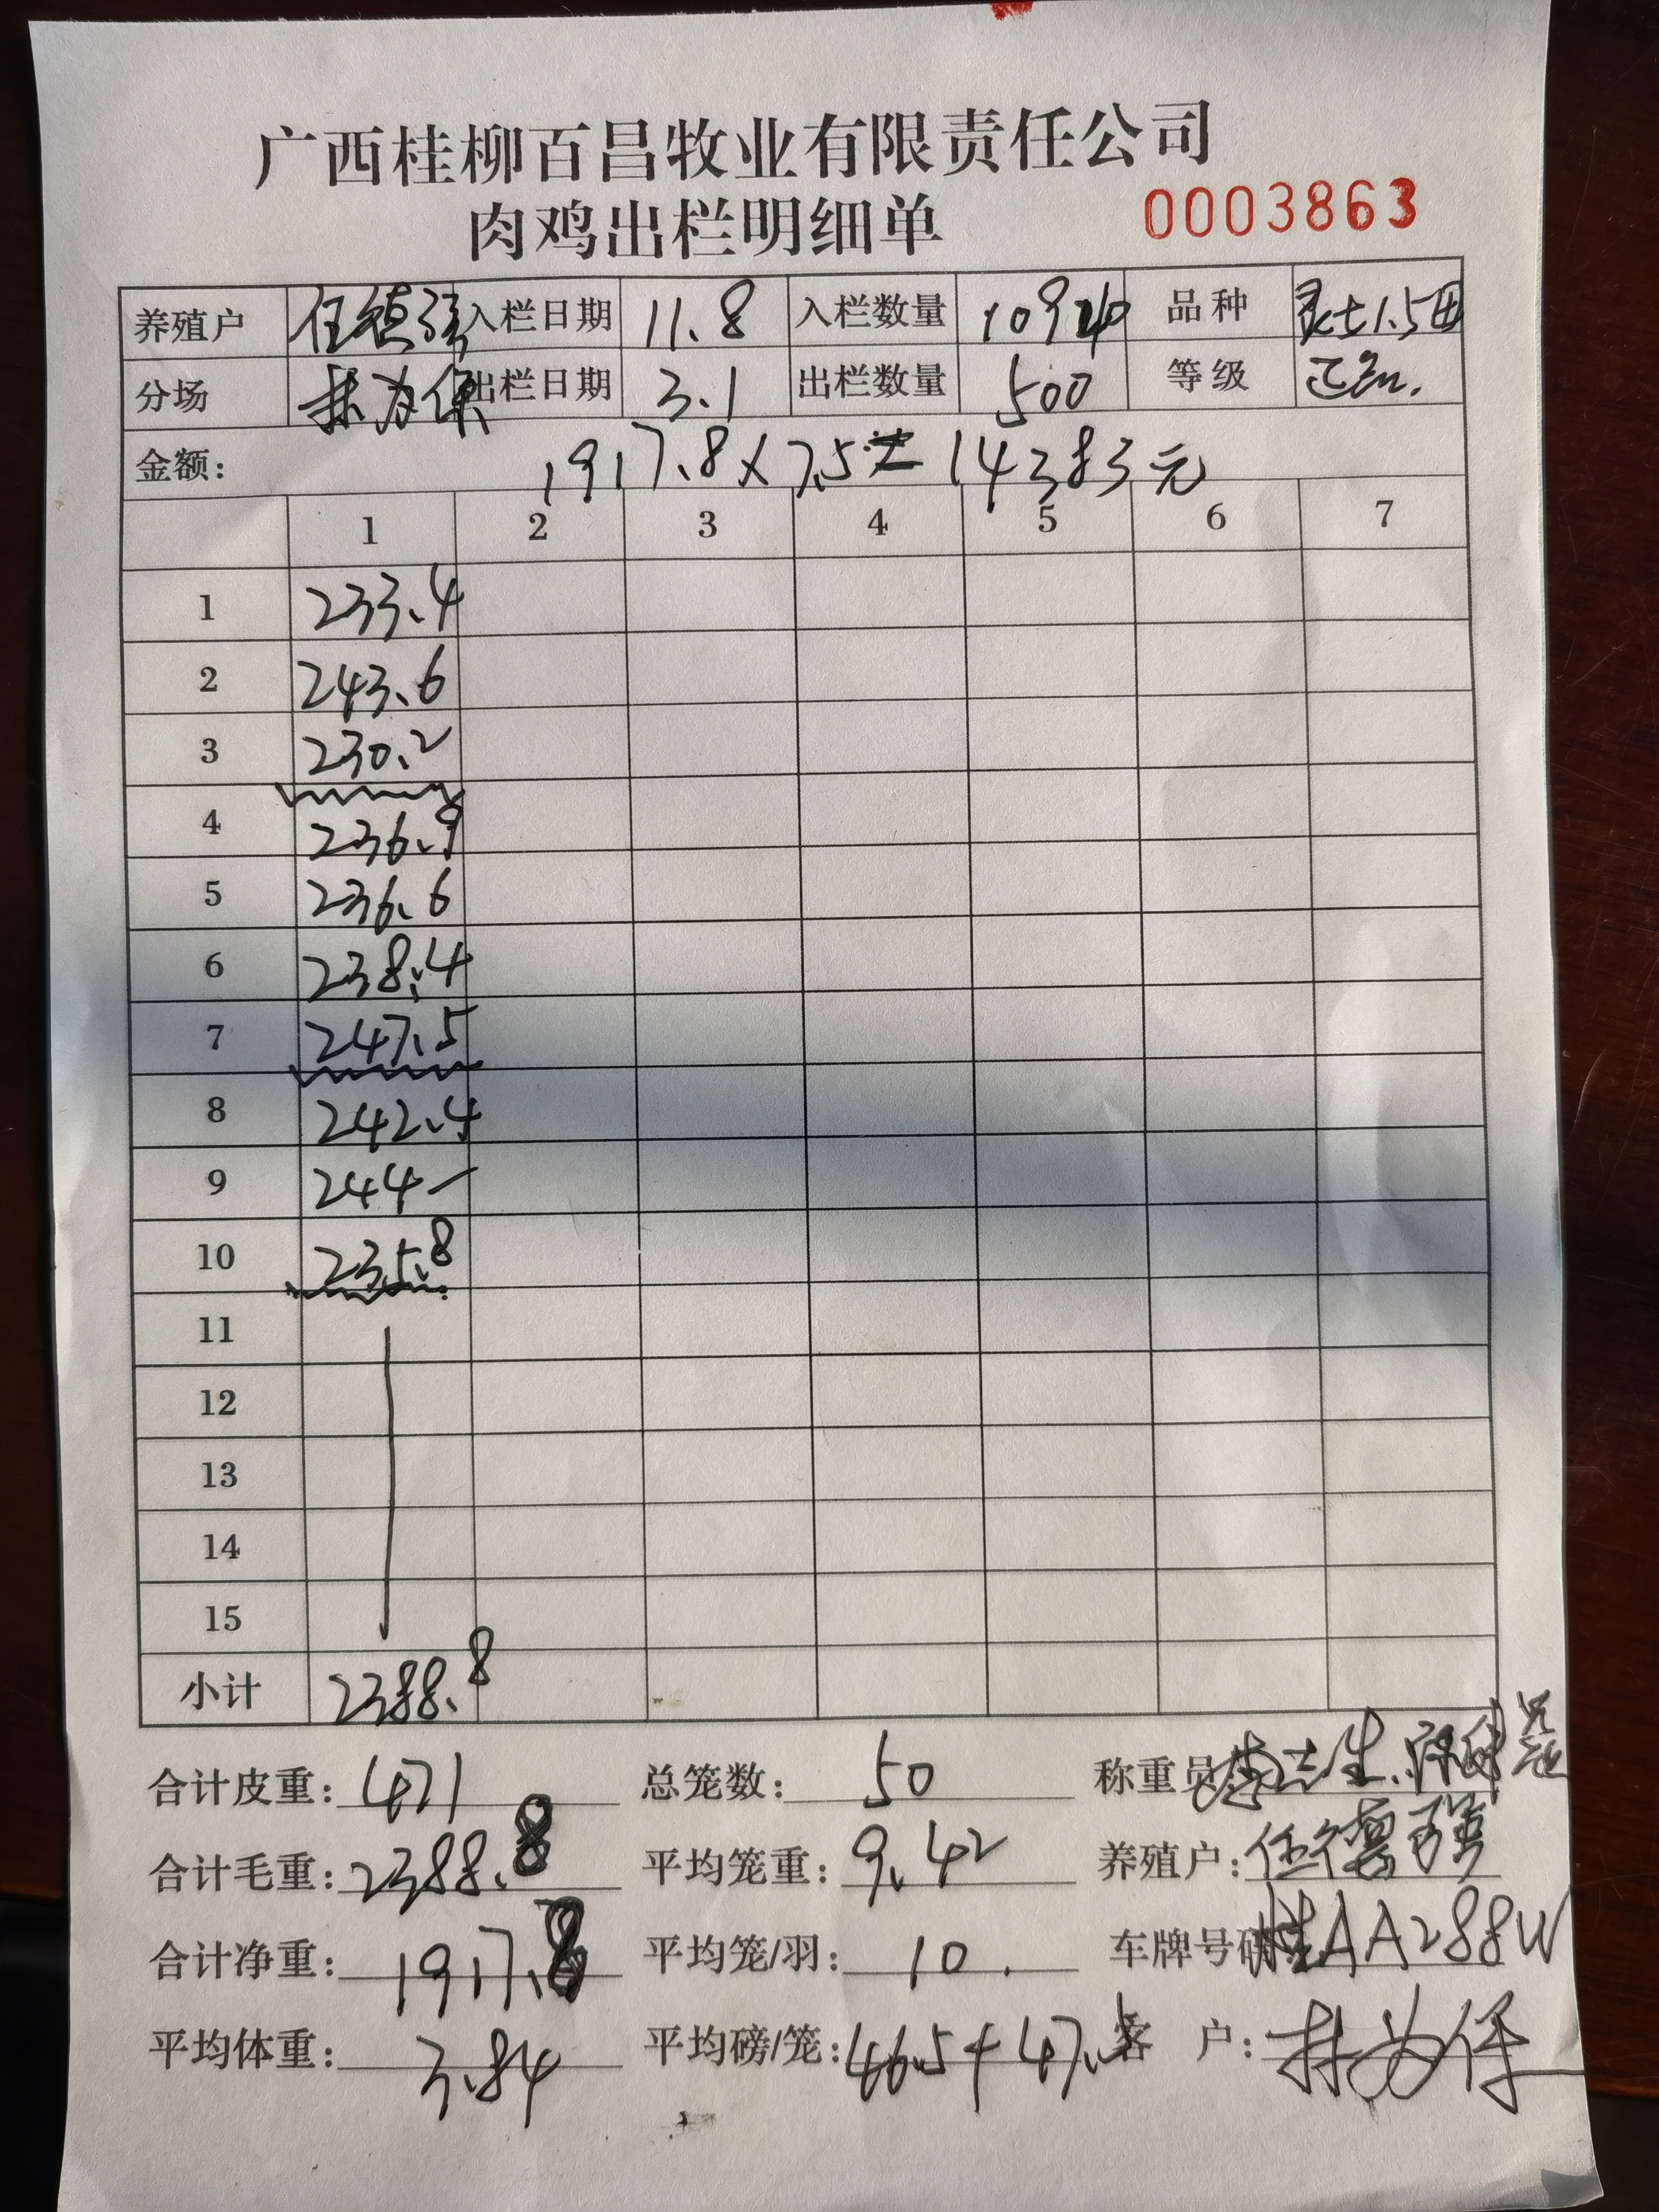 广西桂柳百昌牧业有限责任公司
肉鸡出栏明细单 0003863
养殖户 任德强 入栏日期 11.8 入栏数量 品种
分场 林为保 出栏日期 3.1 出栏数量 500 等级 正品.
金额: 1917.8×7.5=14383元
1 2 3 4 5 6 7
1 233.4
2 243.6
3 230.2
4 236.9
5 236.6
6 238.4
7 247.5
8 242.4
9 244-
10 235.8
11
12
13
14
15
小计 2388.8
合计皮重: 471 总笼数: 50 称重员
合计毛重: 2388.8 平均笼重: 9.42 养殖户: 任德强
合计净重: 1917.8 平均笼/羽: 10. 车牌号码 桂AA288W
平均体重: 3.84 平均磅/笼: 46.5+47.5 客 户: 林为保